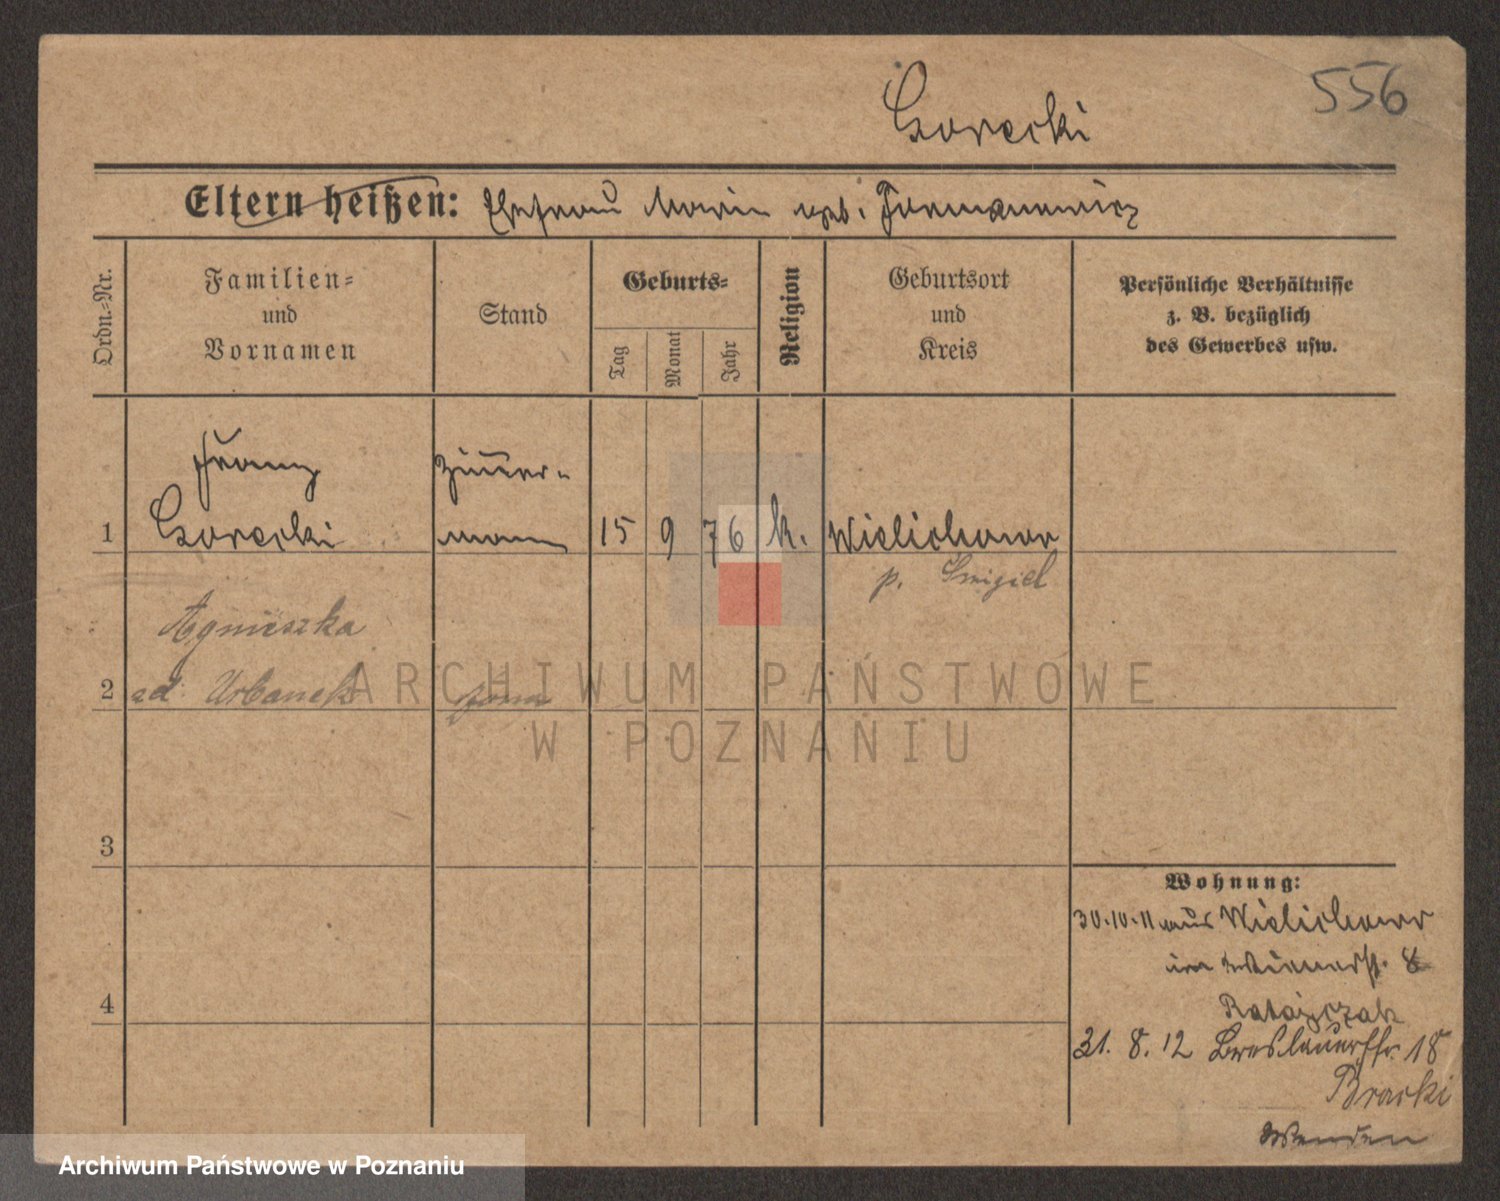 556
Gorecki
Eltern heißen: Ehefrau Marie geb. Furmanewicz
Ordn.=Nr.
Familien=
und
Vornamen
Stand
Geburts=
Tag
Monat
Jahr
Religion
Geburtsort
und
Kreis
Persönliche Verhältnisse
z. B. bezüglich
des Gewerbes usw.
Franz Zimmer-
1 Gorecki mann 15 9 76 k. Wielichowo
p. Śmigiel
Agnieszka
2 zd Urbanek żona
ARCHIWUM PAŃSTWOWE
W POZNANIU
3
4
Wohnung:
30.10.11 aus Wielichowo
8
Ratajczak
31. 8. 12 Breslauerstr. 18
Bracki
Archiwum Państwowe w Poznaniu